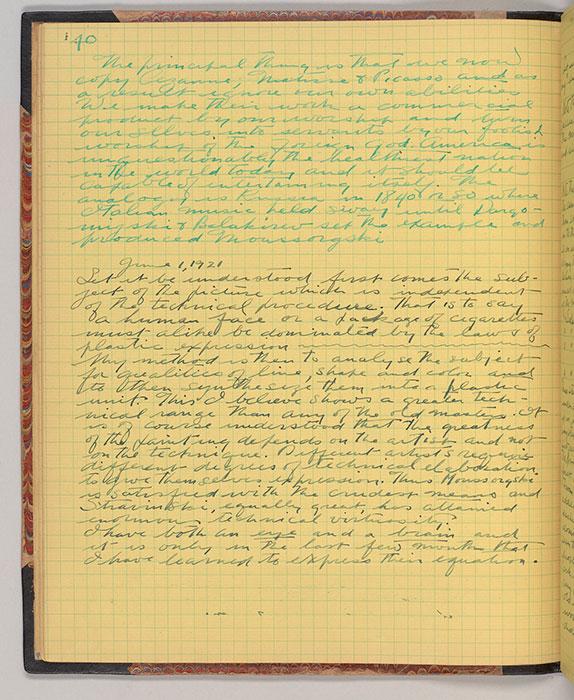 40
The principal thing is that we now
copy Cezanne, Matisse & Picasso and as
a result ignore our own abilities
We make their work a commercial
product by our worship and turn
our selves into servants by our foolish
worship of the foreign God. America is
unquestionably the healthiest nation
in the world today and it should be
capable of intertaining itself. The
analogy is Russia in 1840 or 50 where
Italian music held sway until Dargo-
mijski & Balakirew set the example and
produced Moussorgski
June 1, 1921
Let it be understood first comes the sub-
ject of the picture which is independent
of the technical procedure. That is to say
a human face or a package of cigarettes
must alike be dominated by the laws of
plastic expression
My method is then to analyse the subject
for qualities of line, shape and color and
to then synthesize them into a plastic
unit. This I believe shows a greater tech-
nical range than any of the old masters. It
is of course understood that the greatness
of the painting depends on the artist and not
on the technique. Different artists require
different degrees of technical elaboration
to give themselves expression. Thus Moussorgski
is satisfied with the crudest means and
Stravinski, equally great has attained
enormous technical virtuosity.
I have both an eye and a brain and
it is only in the last few months that
I have learned to express their equation.